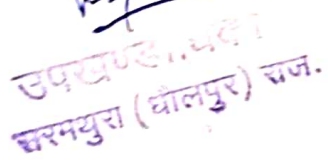 उपखण्ड
सरमथुरा (धौलपुर) राज.